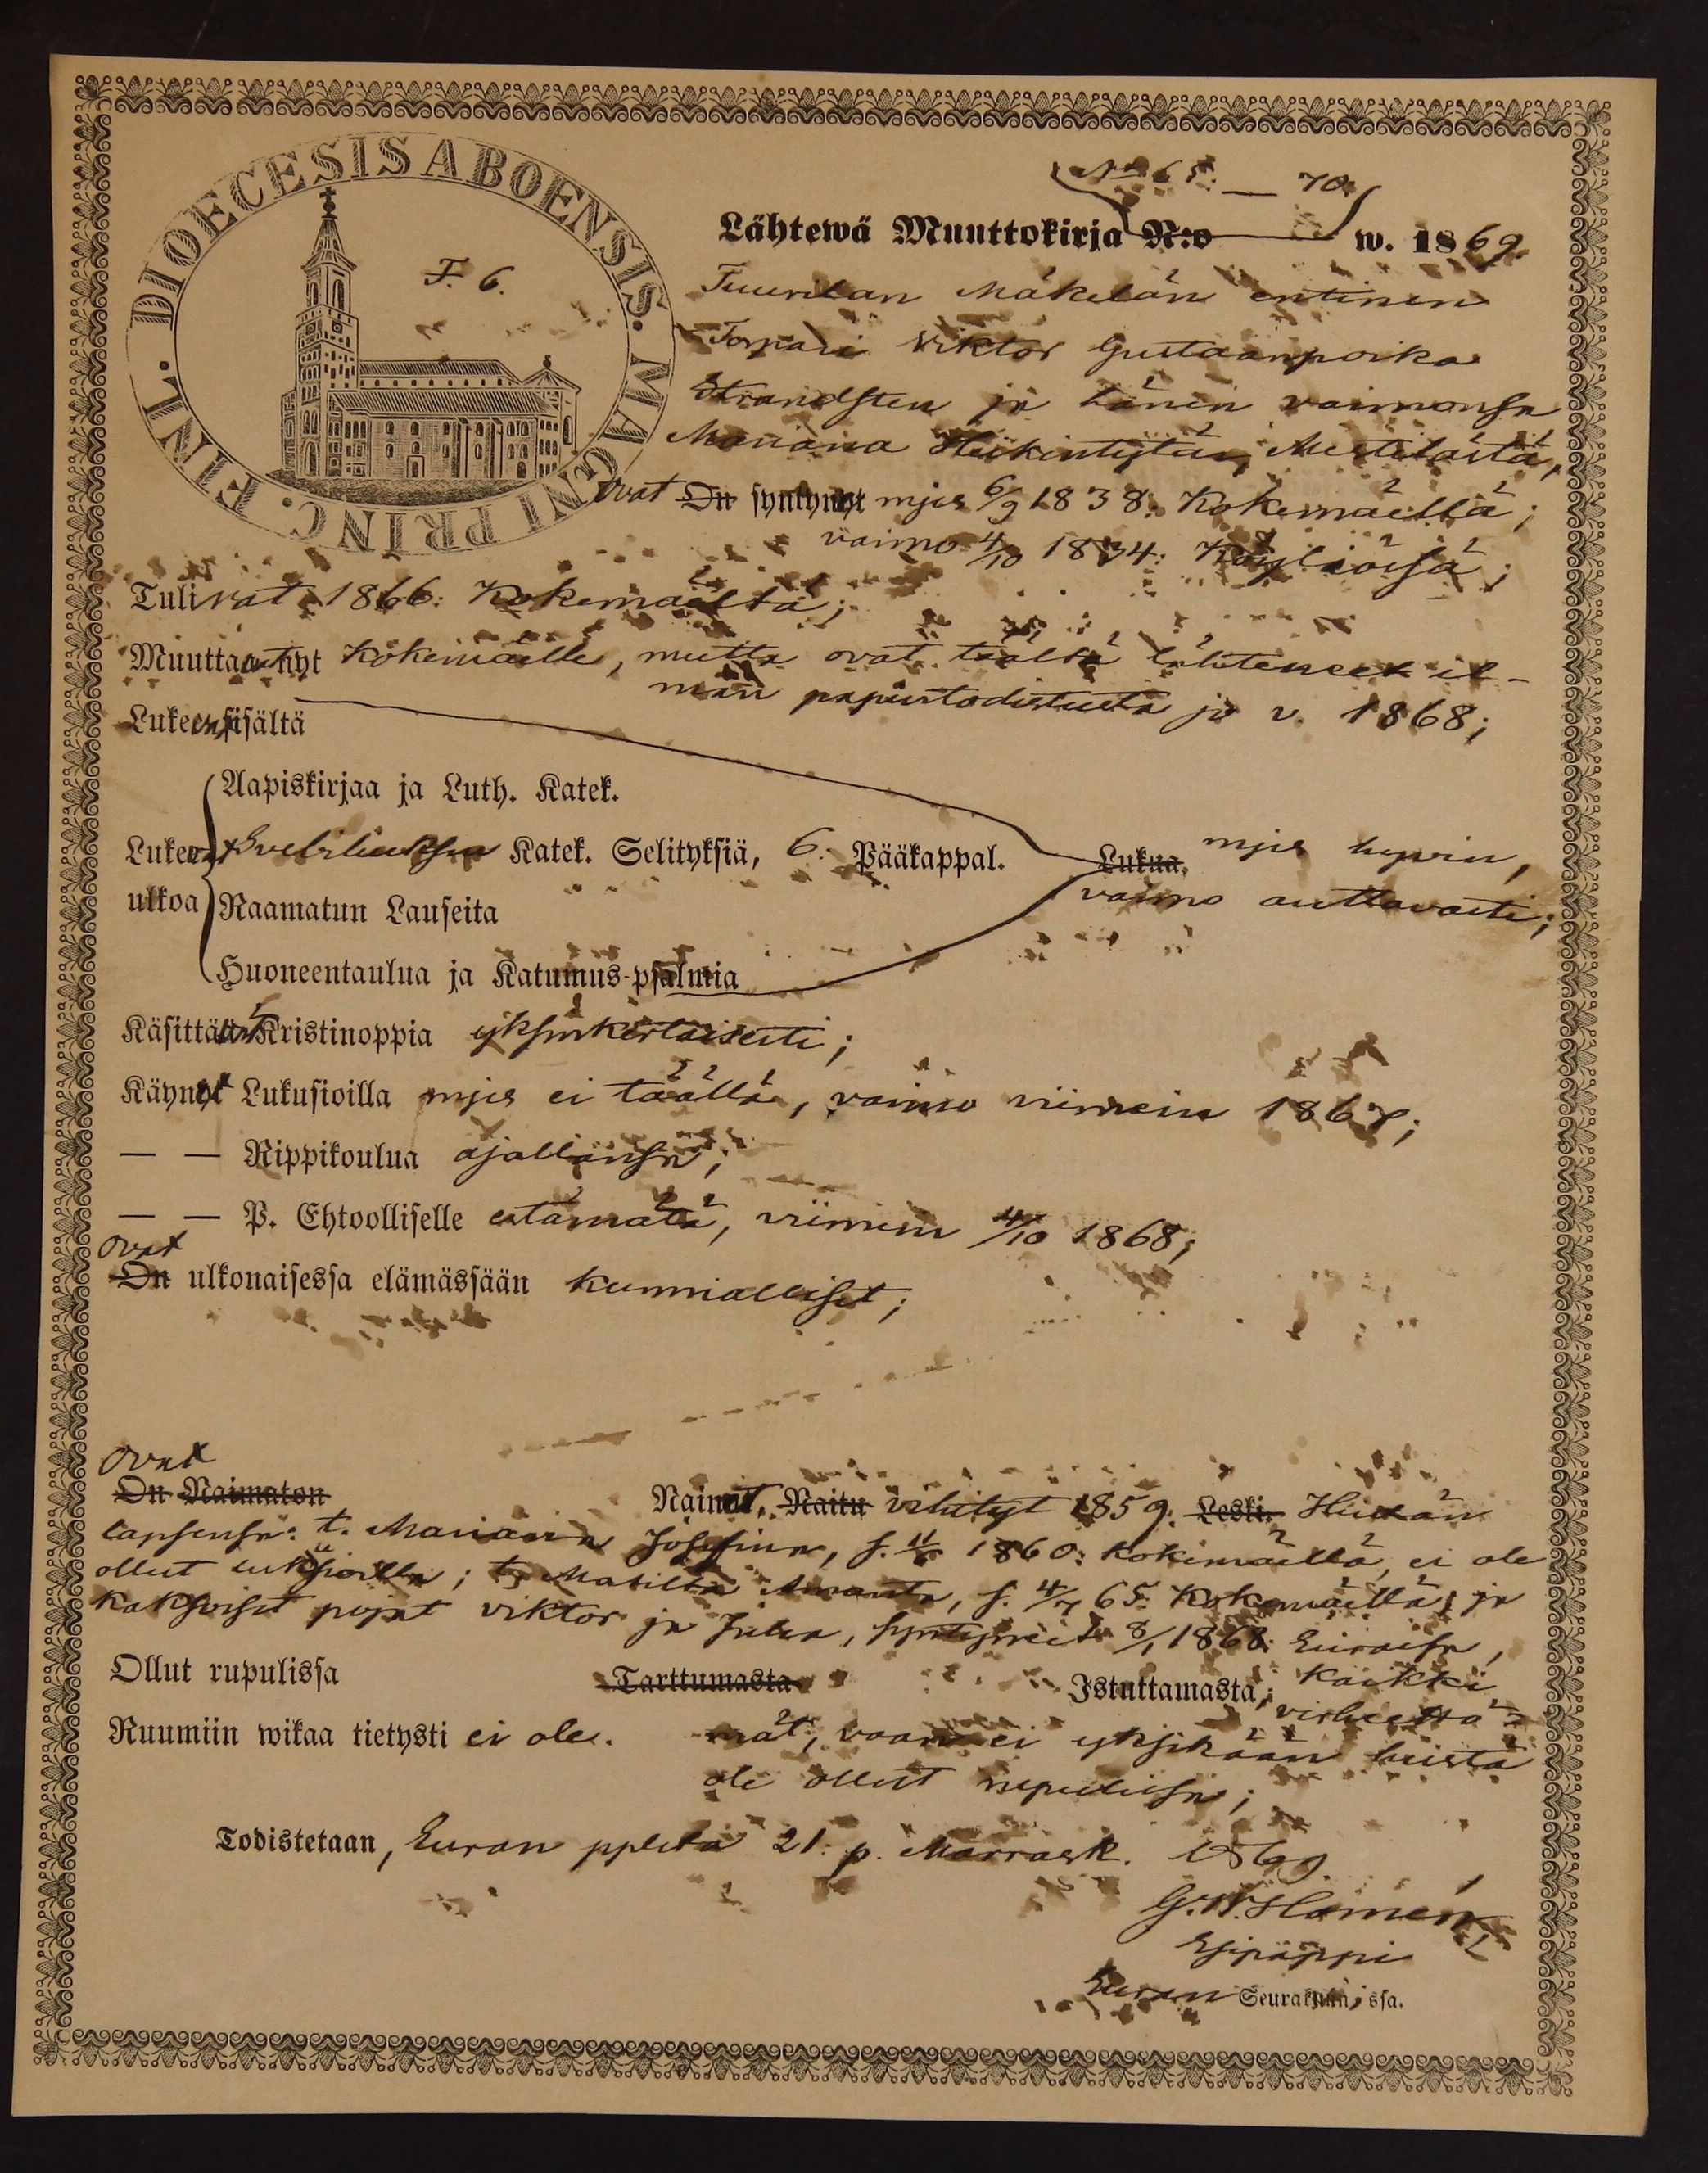 DIOECESIS ABOENSIS. MAGNI PRINC. FINL.
F. 6.
No 65: — 70.
Lähtewä Muuttokirja N:o w. 1869.
Tuurilan Mäkelän entinen
Torpari Viktor Gustaanpoika
Strandsten ja hänen vaimonsa
Mariana Heikintytär, Mestilästä,
ovat On syntynyt mjes 6/9 1838: Kokemäellä;
vaimo 4/10 1834: Köyliösä;
Tulivat 1866: Kokemäeltä;
Muuttavat nyt Kokemäelle, mutta ovat täältä lähteneet il-
man papintodistusta jo v. 1868;
Lukevat sisältä
Aapiskirjaa ja Luth. Katek.
Lukevat Svebiliuksen Katek. Selityksiä, 6. Pääkappal. Lukua. mjes hyvin,
ulkoa Raamatun Lauseita vaimo auttavasti;
Huoneentaulua ja Katumus-psalmia
Käsittävät Kristinoppia yksinkertaisesti;
Käynet Lukusioilla mjes ei täällä, vaimo viimein 1867;
— — Rippikoulua ajallansa;
— — P. Ehtoolliselle estämätä, viimein 4/10 1868;
ovat
On ulkonaisessa elämässään kunnialliset;
ovat
On Naimaton Nainut, Naitu vihityt 1859. Leski. Heidän
lapsensa: t. Mariana Josefina, s. 1860: Kokemäellä, ei ole
ollut lukusioilla; t. Matilta Amanta, s. 4/7 65: Kokemäellä; ja
kaksoiset pojat Viktor ja Julia, syntyneet 8/1 1868: Eurassa,
Ollut rupulissa Tarttumasta Istuttamasta; kaikki
virheettö-
Ruumiin wikaa tietysti ei ole. mät, vaan ei yksikään heistä
ole ollut rupulissa;
Todistetaan, Euran pplsta 21: p. Marrask. 1869.
Esipappi
Euran Seurakunnassa.